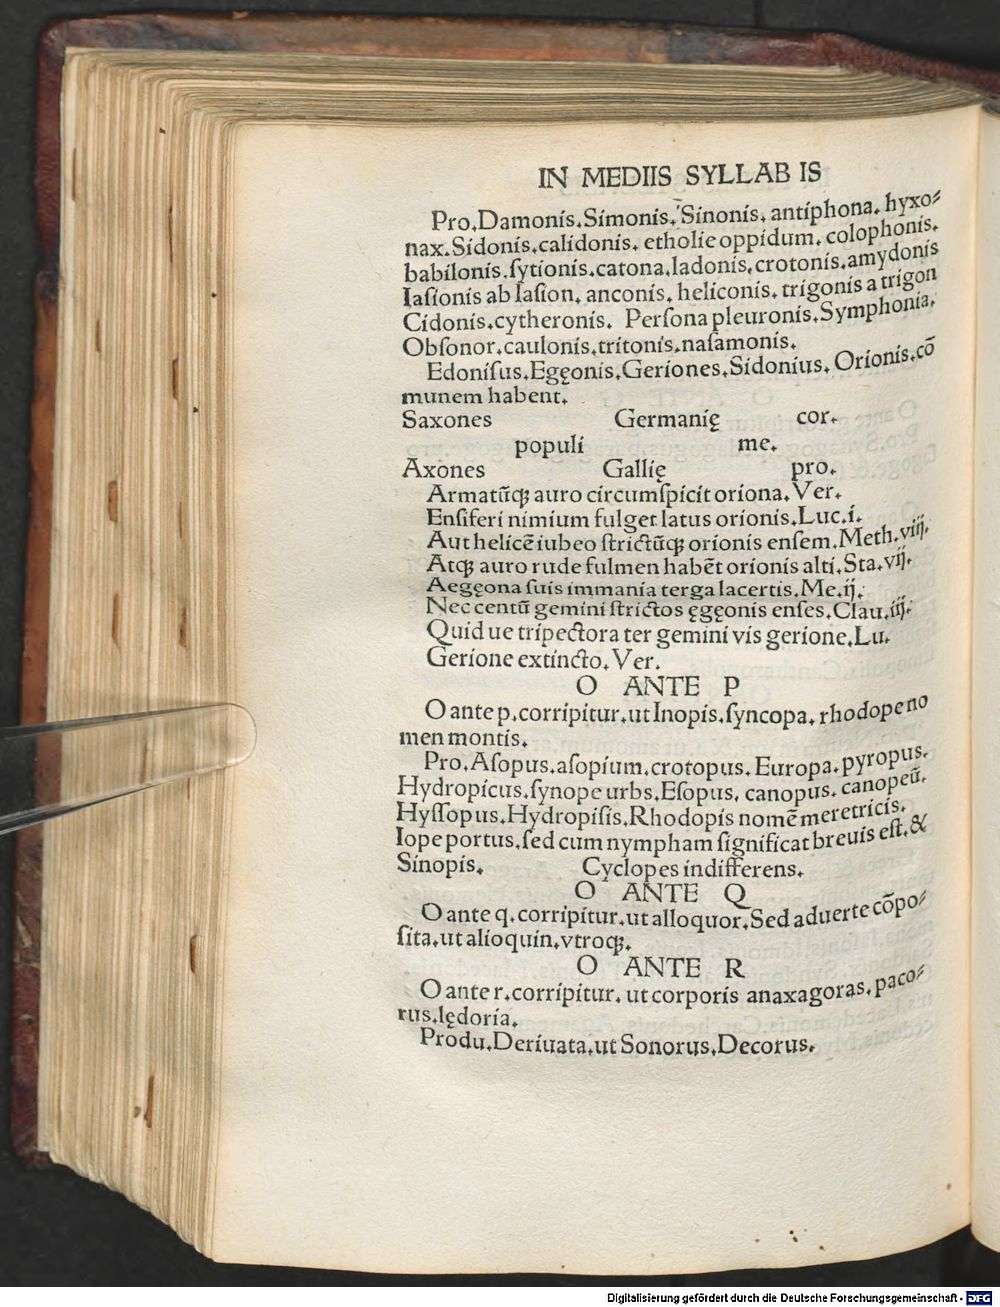 IN MEDIIS SYLLAB IS
Pro.Damonis.Simonis.Sinonis. antiphona. hyxo⸗
nax.Sidonis.calidonis. etholie oppidum. colophonis.
babilonis.ſytionis.catona.ladonis.crotonis.amydonis
Iaſionis ab Iaſion. anconis. heliconis. trigonis a trigon
Cidonis.cytheronis. Perſona pleuronis.Symphonia.
Obſonor.caulonis.tritonis.naſamonis.
Edoniſus.Egęonis.Geriones.Sidonius. Orionis.cō
munem habent.
Saxones Germanię cor.
populi me.
Axones Gallię pro.
Armatūqꝫ auro circumſpicit oriona. Ver.
Enſiferi nimium fulget latus orionis.Luc.i.
Aut helicē iubeo ſtrictūqꝫ orionis enſem.Meth.viij.
Atqꝫ auro rude fulmen habēt orionis alti.Sta.vij.
Aegęona ſuis immania terga lacertis.Me.ij.
Nec centū gemini ſtrictos ęgęonis enſes.Clau.iij.
Quid ue tripectora ter gemini vis gerione.Lu.
Gerione extincto.Ver.
O ANTE P
O ante p.corripitur.ut Inopis.ſyncopa. rhodope no
men montis.
Pro.Aſopus.aſopium.crotopus. Europa.pyropus.
Hydropicus.ſynope urbs.Eſopus. canopus. canopeū.
Hyſſopus.Hydropiſis.Rhodopis nomē meretricis.
Iope portus.ſed cum nympham ſignificat breuis eſt.&
Sinopis. Cyclopes indifferens.
O ANTE Q
O ante q.corripitur.ut alloquor.Sed aduerte cōpo⸗
ſita.ut alioquin.vtroqꝫ.
O ANTE R
O ante r.corripitur. ut corporis anaxagoras.paco⸗
rus.lędoria.
Produ.Deriuata.ut Sonorus.Decorus.
Digitalisierung gefördert durch die Deutsche Forschungsgemeinschaft - DFG